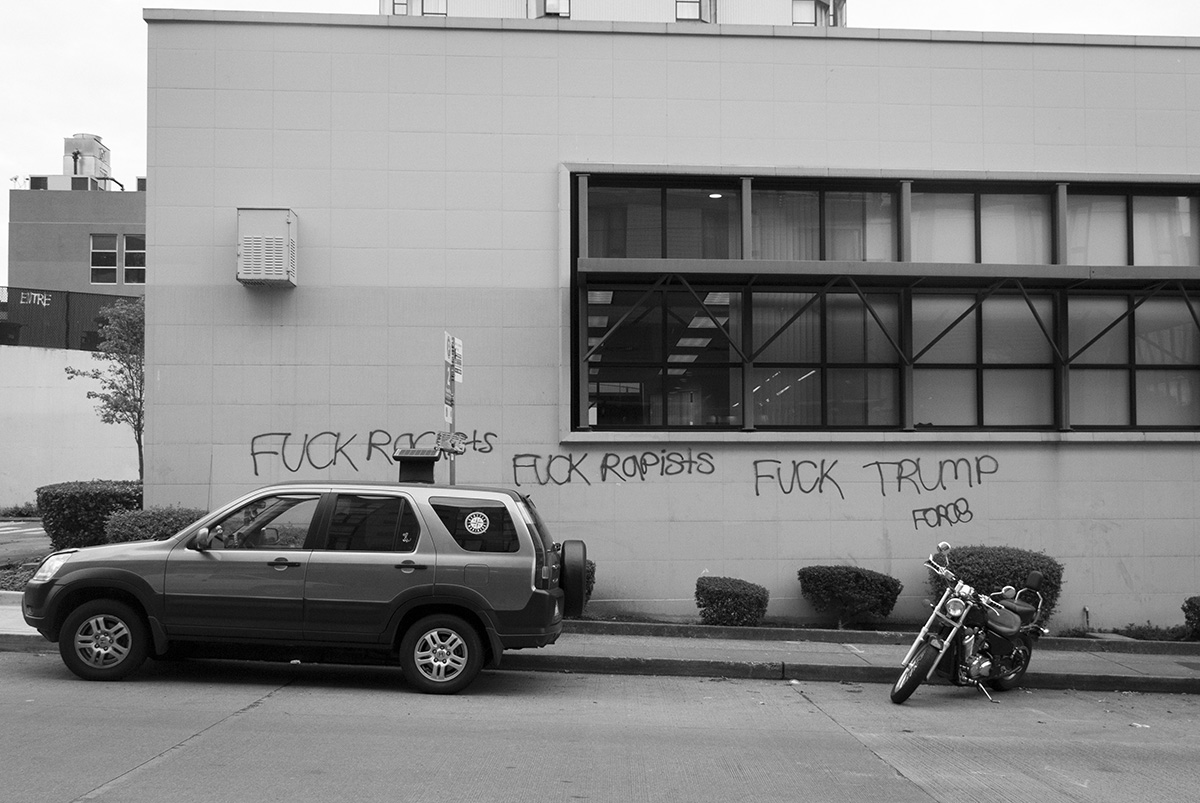 ENTRE
FUCK RACists
FUCK RapisTs
FUCK TRUMP